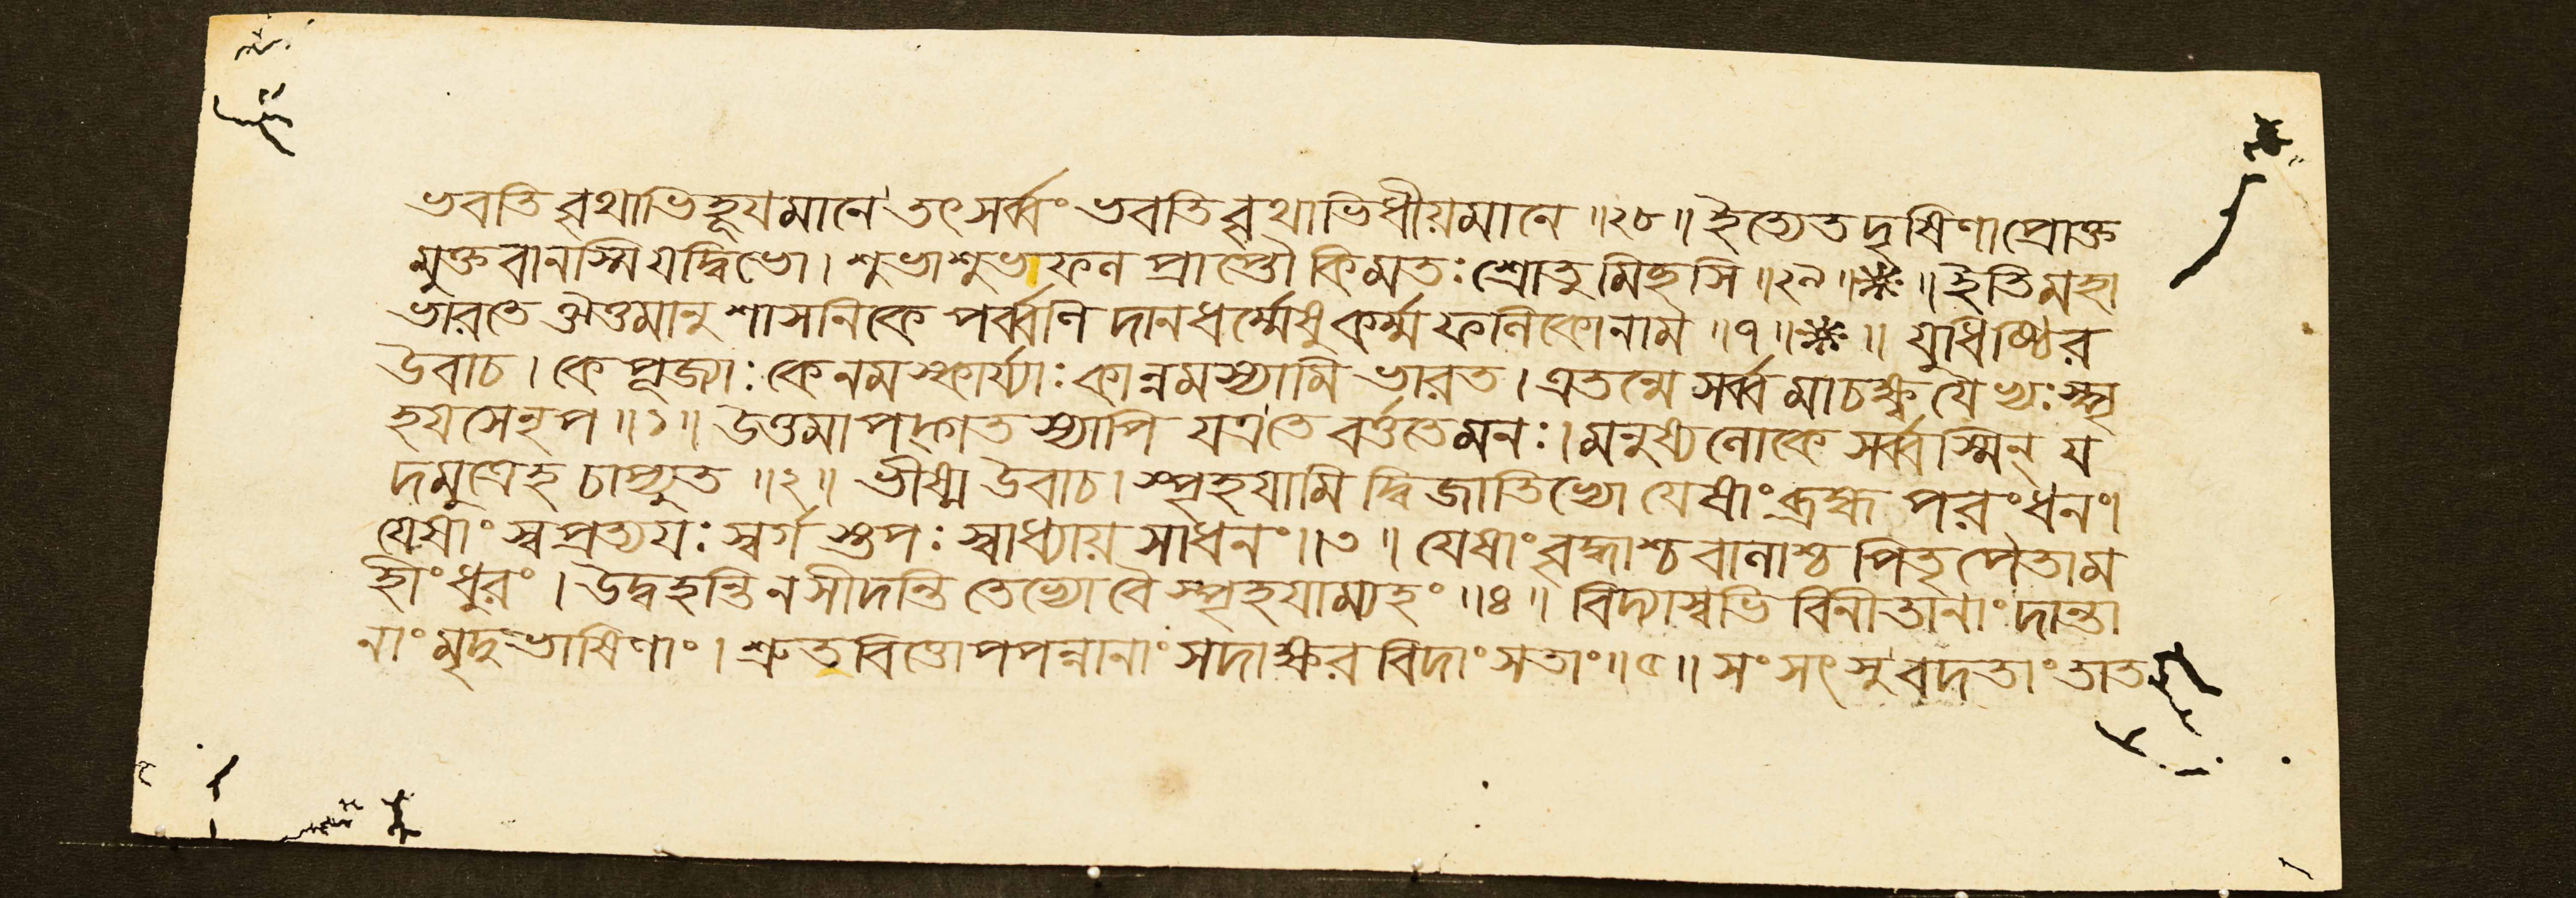 ভবতি বৃথাভিহূযমানে তৎ সর্ব্বং ভবতি বৃথাভিধীয়মানে ॥২৮॥ ইত্যেতদৃষিণা প্রোক্ত
মুক্তবানস্মি যদ্বিভো । শুভাশুভফল প্রাপ্তৌ কিমতঃ শ্রোতুমিহসি ॥২৯॥ ❋ ॥ ইতি মহা
ভারতে ঔত্তমানুশাসনিকে পর্ব্বণি দানধর্ম্মেষু কর্ম্মফলিকোনাম ॥৭॥ ❋ ॥ যুধিষ্ঠির
উবাচ । কে পূজ্যাঃ কে নমস্কার্য্যাঃ কান্নমস্যামি ভারত । এতন্মে সর্ব্বমাচক্ষ্ব যেভ্যঃ স্পৃ
হযসে নৃপ ॥১॥ উত্তমাপদ্গতস্যাপি যত্র তে বর্ত্ততে মনঃ । মনুষ্যলোকে সর্ব্বস্মিন্ য
দমুত্রেহ চাপ্যুত ॥২॥ ভীষ্ম উবাচ । স্পৃহযামি দ্বিজাতিভ্যো যেষাং ব্রহ্ম পরং ধনং ।
যেষাং স্বপ্রত্যযঃ স্বর্গস্তপঃ স্বাধ্যায়সাধনং ॥৩॥ যেষাং বৃদ্ধাশ্চ বালাশ্চ পিতৃপৈতাম
হীং ধুরং । উদ্বহন্তি ন সীদন্তি তেভ্যো বৈ স্পৃহযাম্যহং ॥৪॥ বিদ্যাস্বভিবিনীতানাং দান্তা
নাং মৃদুভাষিণাং । শ্রুতবিত্তোপপন্নানাং সদাক্ষরবিদাং সতাং ॥৫॥ সংসৎসু বদতাং তাত